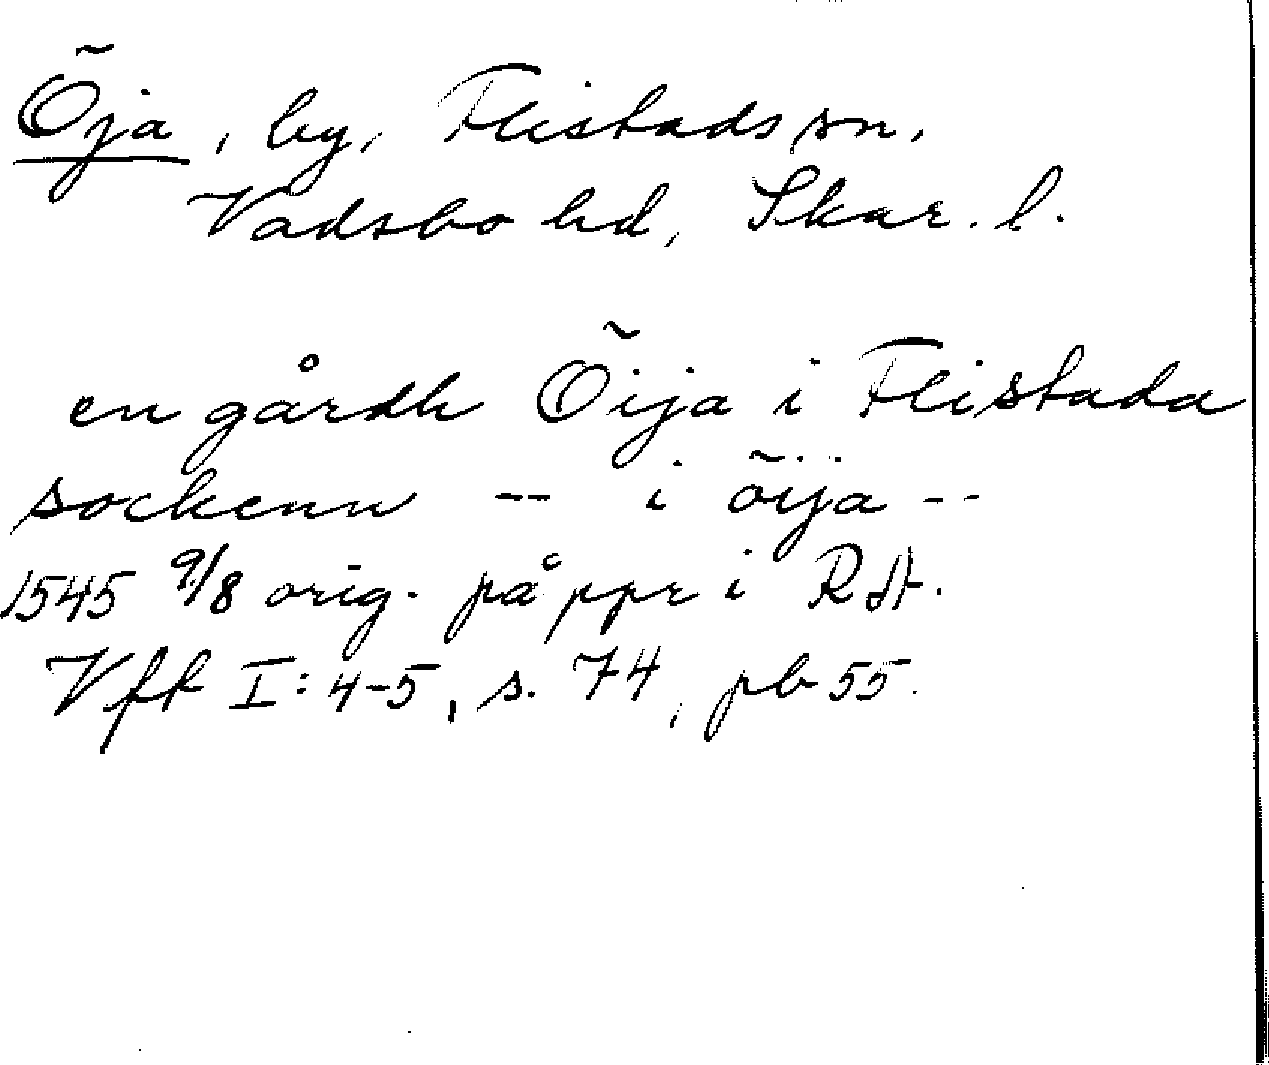 Õja, by, Flistads sn,
Vadsbo hd, Skar. l.
en gårdh Õija i Flistada
sockenn -- i õija --
1545 9/8 orig. på ppr i RA.
Vft I: 4-5, s. 74, pb 55.